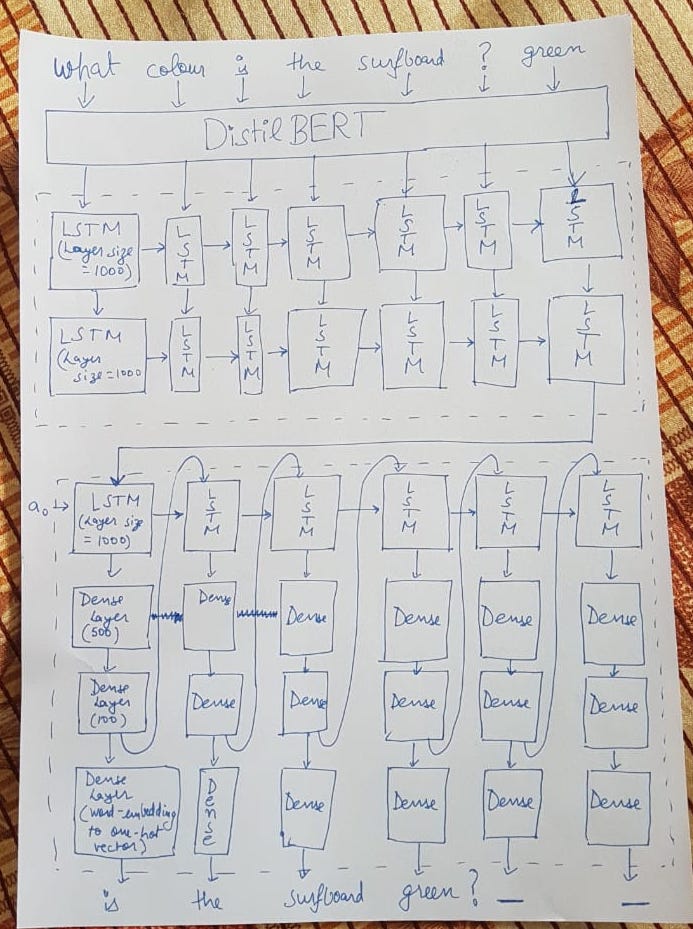 what colour is the surfboard ? green
DistilBERT
LSTM
(Layer size
=1000)
LSTM
LSTM
LSTM
LSTM
LSTM
LSTM
LSTM
(Layer
size=1000
LSTM
LSTM
LSTM
LSTM
LSTM
LSTM
a0
LSTM
(Layer size
=1000)
LSTM
LSTM
LSTM
LSTM
LSTM
Dense
Layer
(500)
Dense
Dense
Dense
Dense
Dense
Dense
Layer
(100)
Dense
Dense
Dense
Dense
Dense
Dense
Layer
(word-embedding
to one-hot
vector)
Dense
Dense
Dense
Dense
Dense
is the surfboard green ? — —